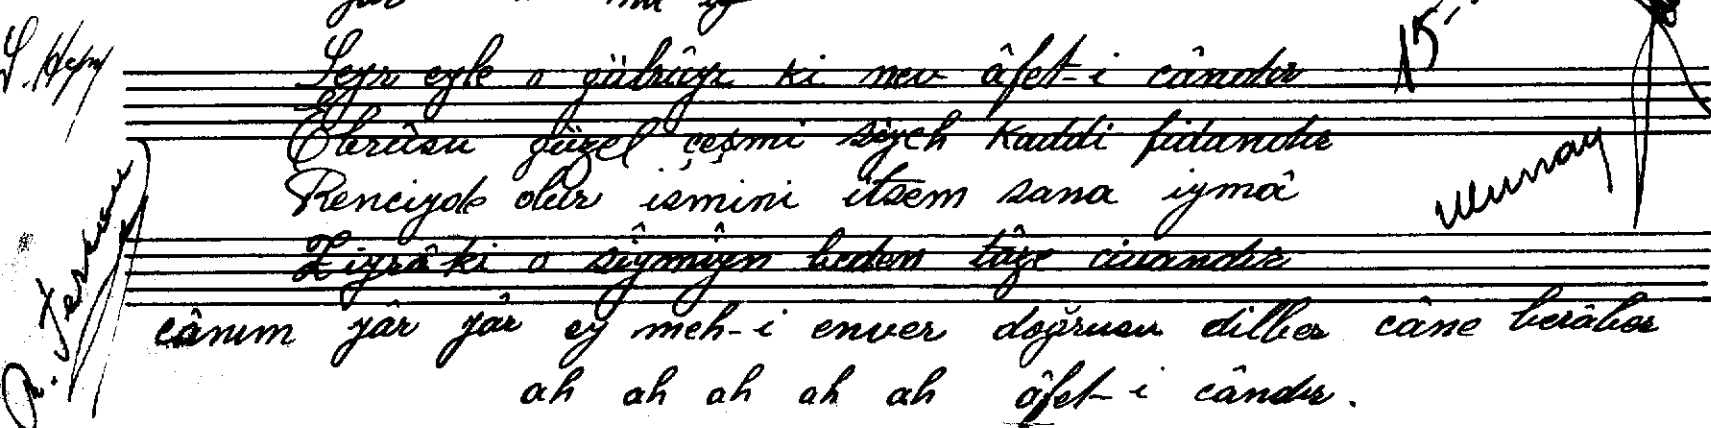 Seyr eyle o gülrûyi ki nev âfet-i cândır
Ebrûsu güzel çeşmi siyeh kaddi fidandır
Renciyde olur ismini itsem sana iymâ
Ziyrâ ki o sîymîyn beden tâze civandır
cânım yâr yâr ey meh-i enver doğrusu dilber câne berâber
ah ah ah ah ah âfet-i cândır.